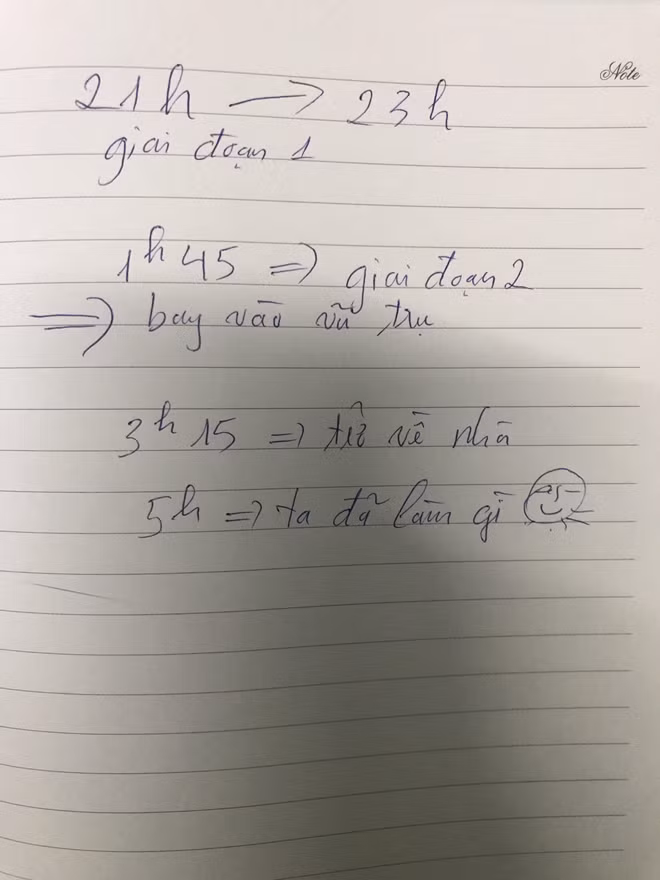 Note
21h → 23h
giai đoạn 1
1h 45 => giai đoạn 2
=> bay vào vũ trụ
3h 15 => về nhà
5h => ta đã làm gì